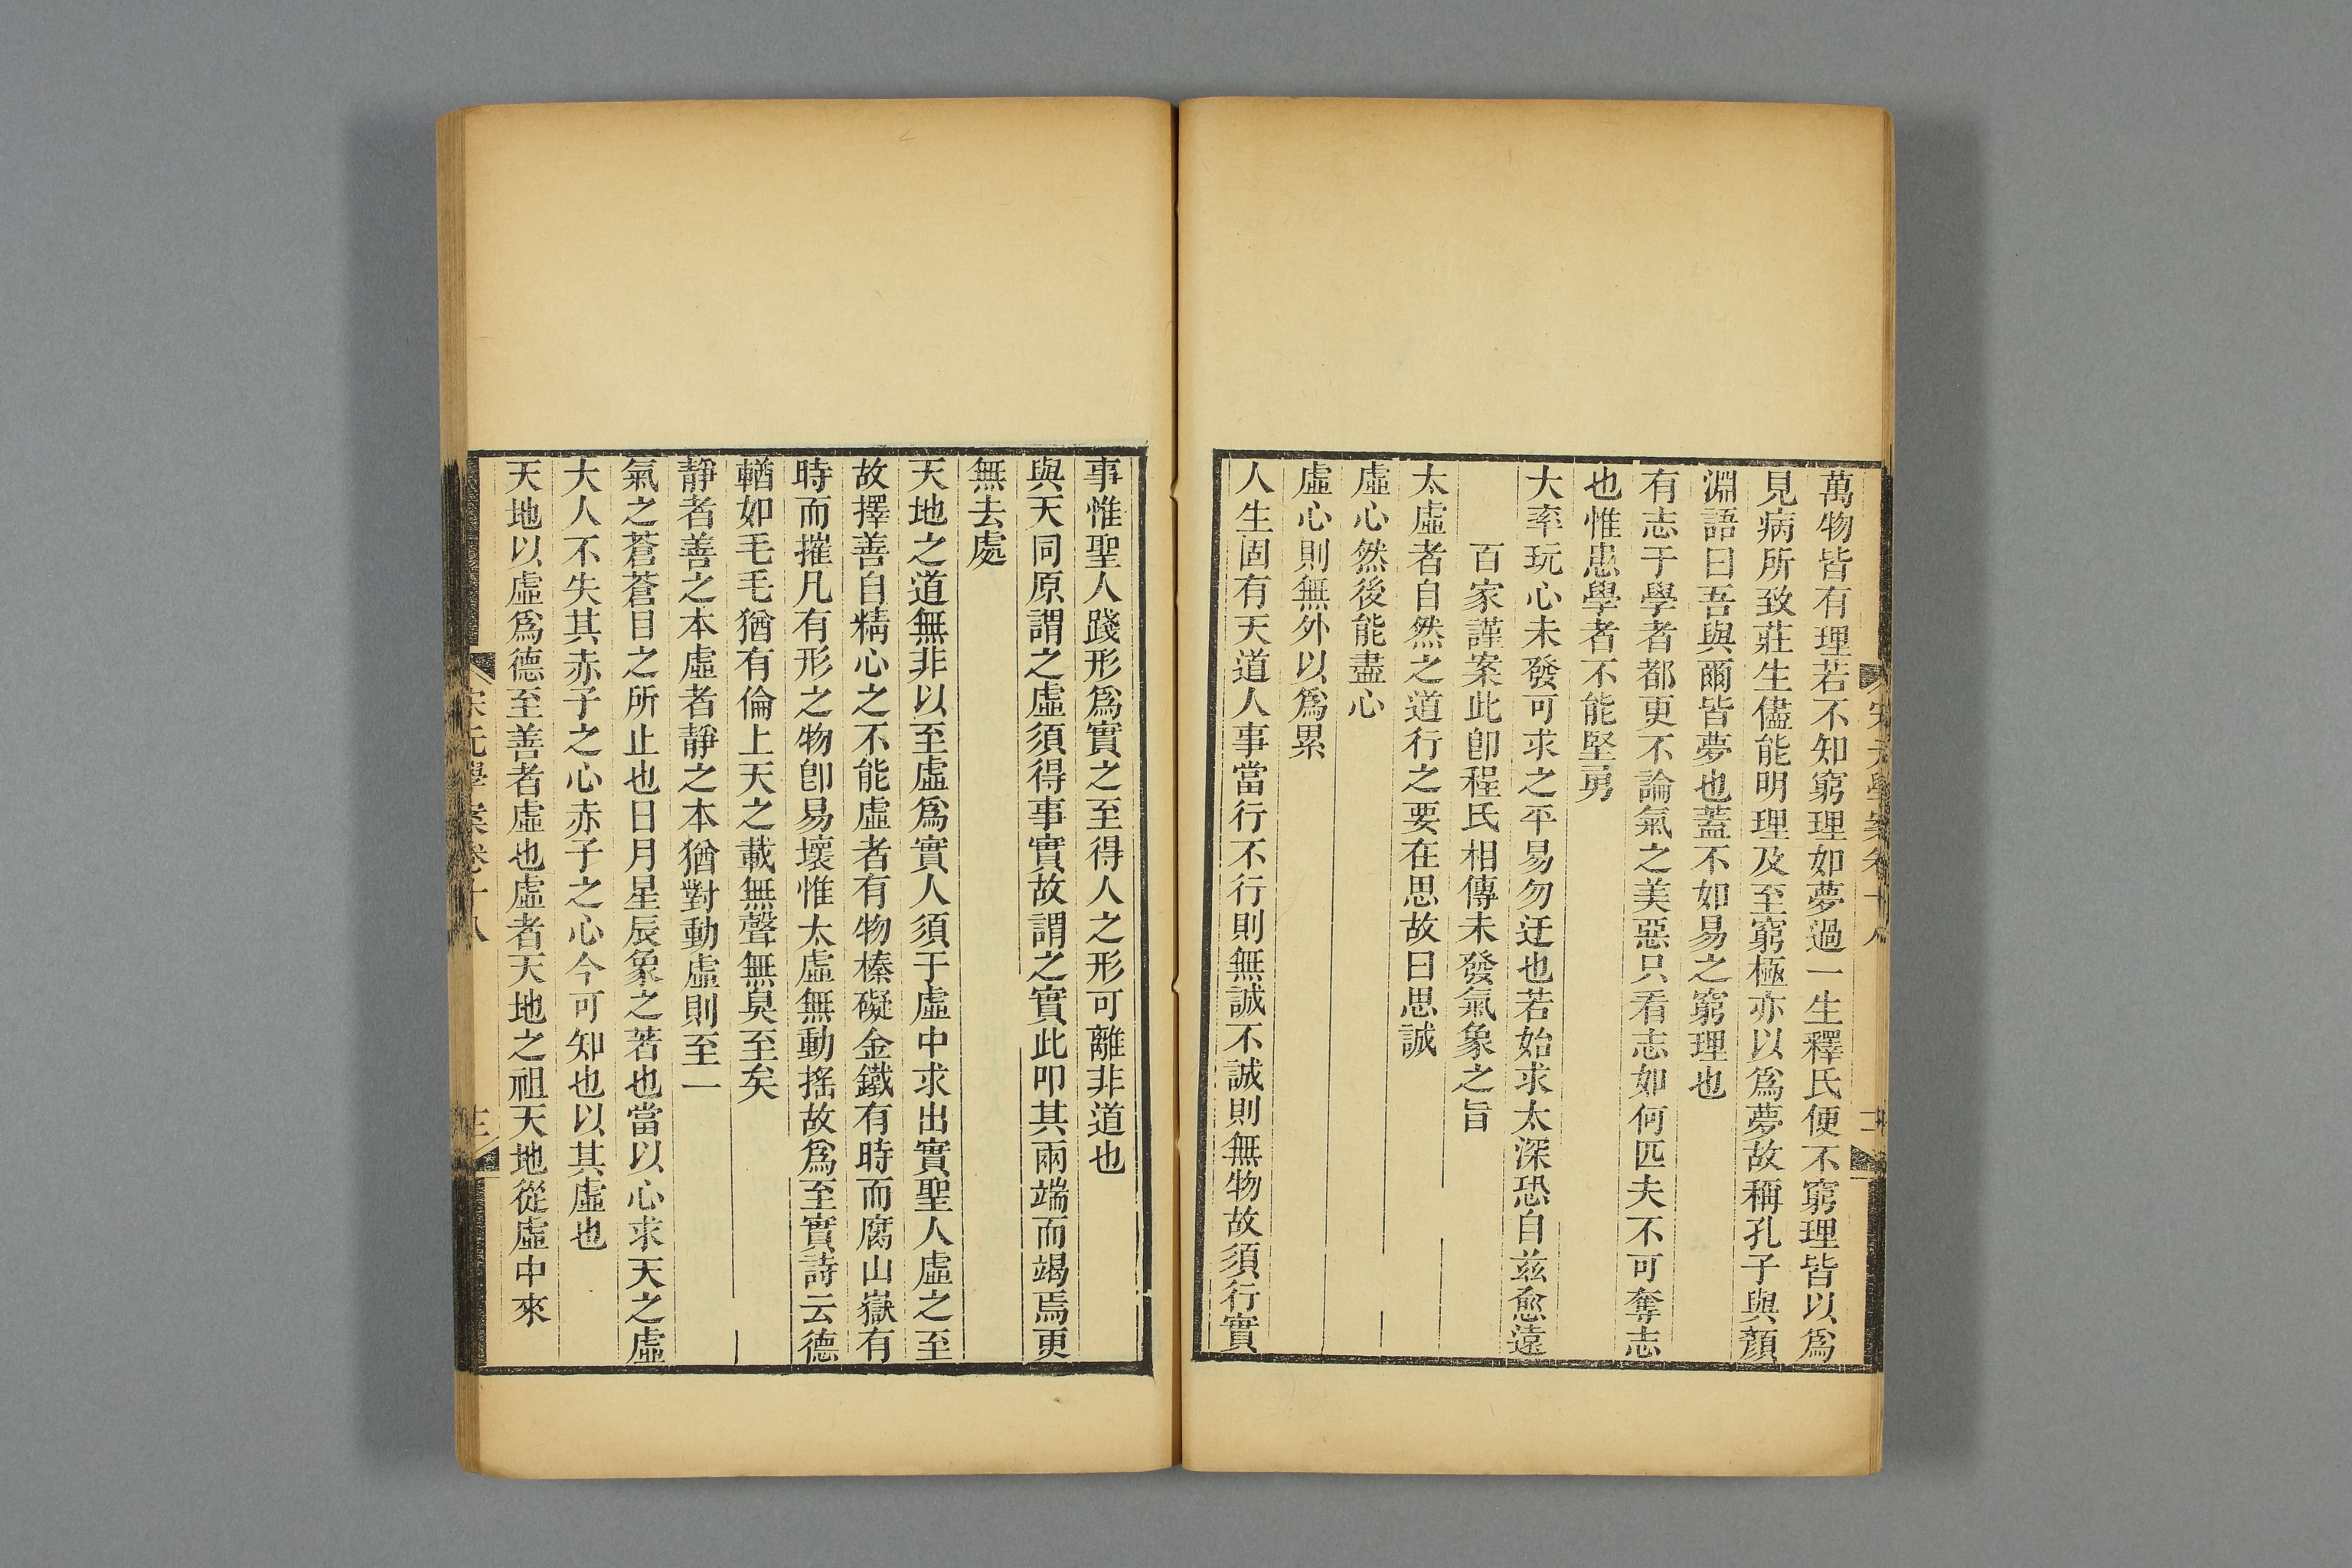 萬物皆有理若不知窮理如夢過一生釋氏便不窮理皆以爲
見病所致莊生儘能明理及至窮極亦以爲夢故稱孔子與顏
淵語曰吾與爾皆夢也蓋不如易之窮理也
有志于學者都更不論氣之美惡只看志如何匹夫不可奪志
也惟患學者不能堅勇
大率玩心未發可求之平易勿迂也若始求太深恐自玆愈遠
百家謹案此卽程氏相傳未發氣象之旨
太虛者自然之道行之要在思故曰思誠
虛心然後能盡心
虛心則無外以爲累
人生固有天道人事當行不行則無誠不誠則無物故須行實
事惟聖人踐形爲實之至得人之形可離非道也
與天同原謂之虛須得事實故謂之實此叩其兩端而竭焉更
無去處
天地之道無非以至虛爲實人須于虛中求出實聖人虛之至
故擇善自精心之不能虛者有物榛礙金鐵有時而腐山嶽有
時而摧凡有形之物卽易壞惟太虛無動搖故爲至實詩云德
輶如毛毛猶有倫上天之載無聲無臭至矣
靜者善之本虛者靜之本猶對動虛則至一
氣之蒼蒼目之所止也日月星辰象之著也當以心求天之虛
大人不失其赤子之心赤子之心今可知也以其虛也
天地以虛爲德至善者虛也虛者天地之祖天地從虛中來
宋元學案卷十八